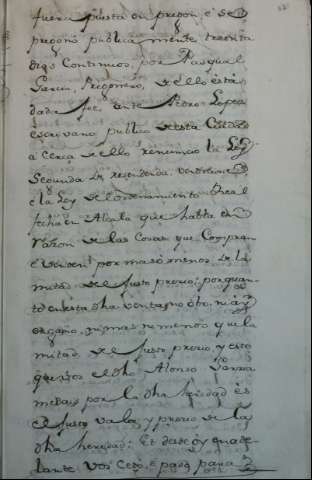 fuera puesta en pregon e se
pregono publicamente treinta
dias Continuos por Pasqual
Garcia, Pregonero, de ello esta
dada fee ante Pedro Lopez
escrivano publico desta Ciudad
a cerca de ello renuncio la Ley
Segunda
e la Ley de ordenamiento Real
fecha en Alcala que habla en
razon de las Cosas que Compran
e venden por mas o menos de la
mitad de el justo precio; porquan-
to en esta dha venta no obo, ni ay
engaño, ni mas ni menos que la
mitad de el justo precio, y esto
que vos el dho Alonso
me dais por la dha heredad es
el justo valor y precio de la
dha heredad; Et desde oy en ade-
lante vos Cedo, e paso para